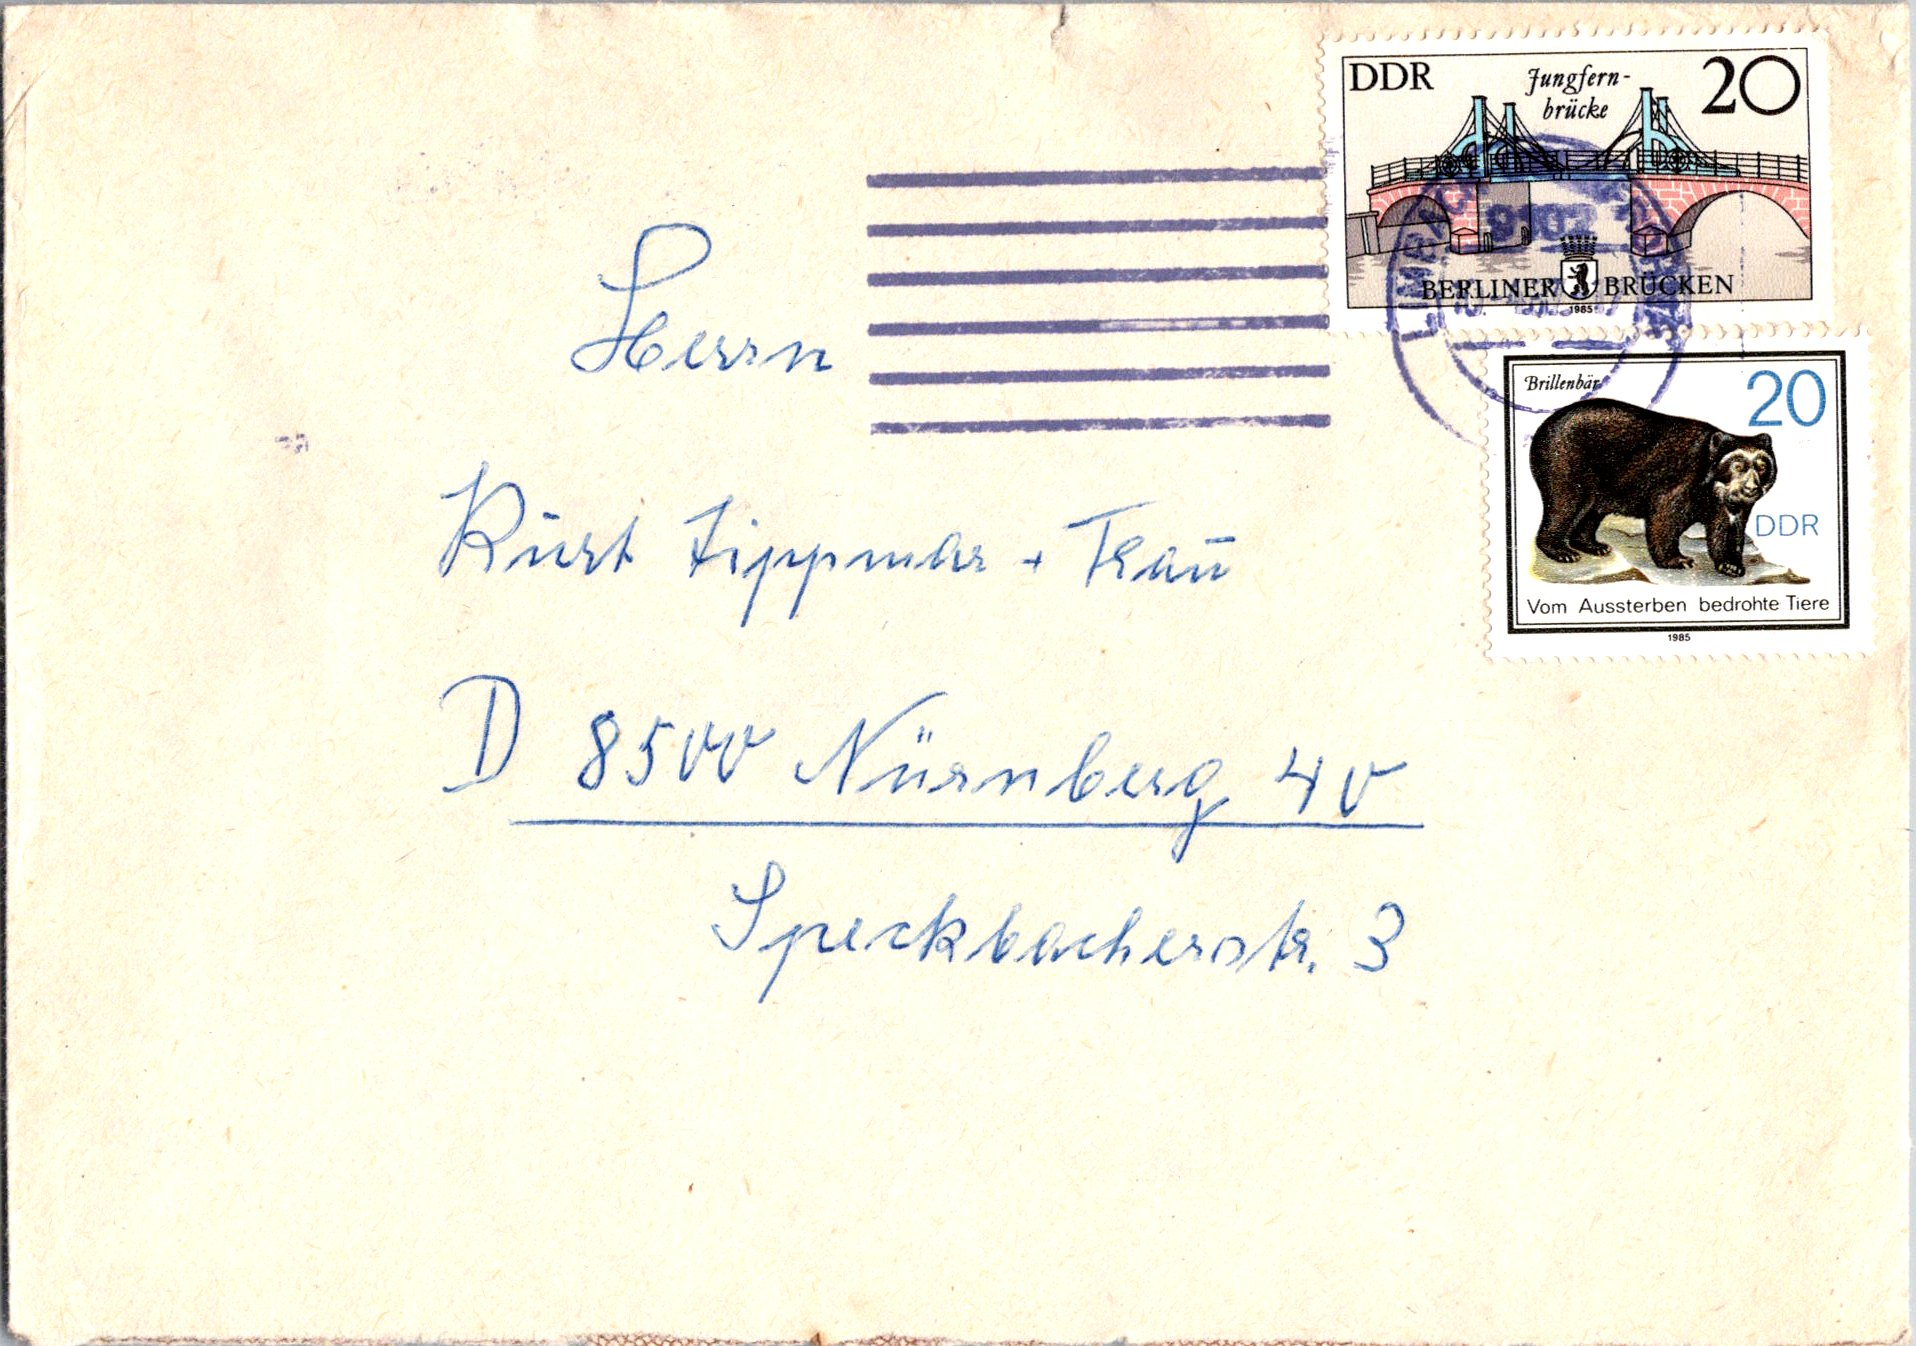 DDR
Jungfern-
brücke
20
BERLINER BRÜCKEN
1985
9102
Brillenbär
20
DDR
Vom Aussterben bedrohte Tiere
1985
Herrn
Kurt Tippmar + Frau
D 8500 Nürnberg 40
Speckbacherstr. 3